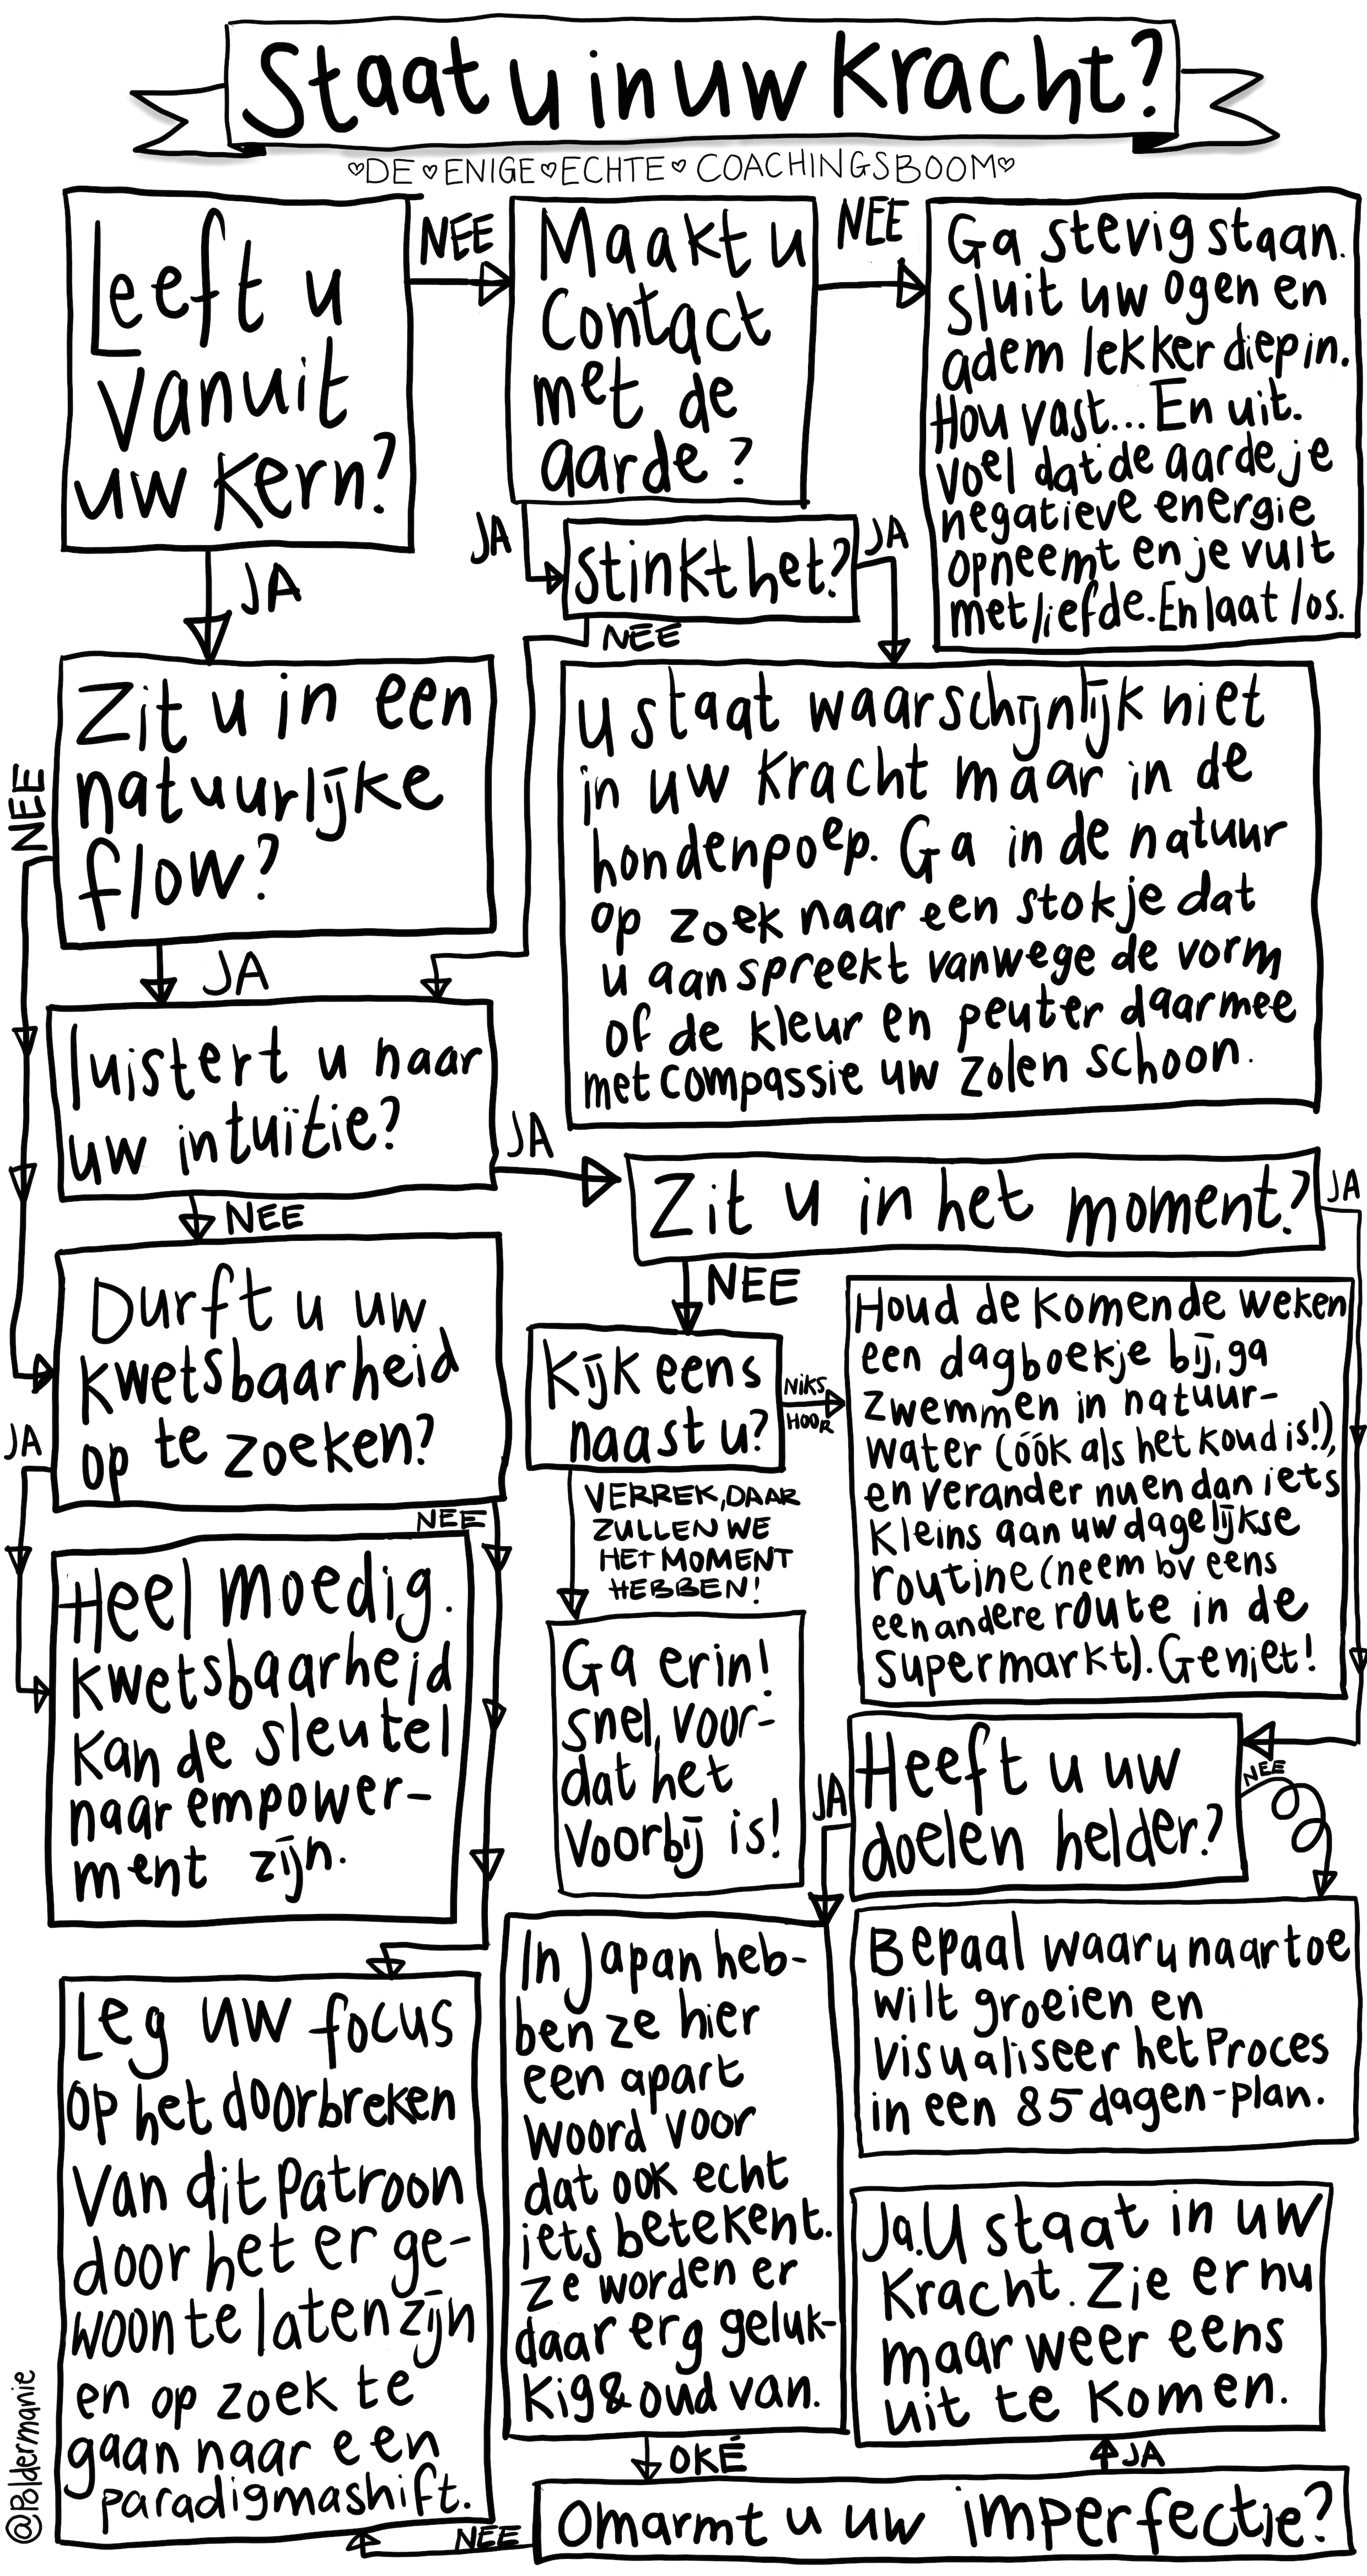 Staat u in uw kracht?
DE ENIGE ECHTE COACHINGSBOOM
Leeft u
vanuit
uw kern?
NEE
Maakt u
contact
met de
aarde?
NEE
Ga stevig staan.
sluit uw ogen en
adem lekker diep in.
Hou vast... En uit.
voel dat de aarde je
negatieve energie
opneemt en je vult
met liefde. En laat los.
JA
stinkt het?
JA
NEE
JA
u staat waarschijnlijk niet
in uw kracht maar in de
hondenpoep. Ga in de natuur
op zoek naar een stokje dat
u aanspreekt vanwege de vorm
of de kleur en peuter daarmee
met compassie uw zolen schoon.
Zit u in een
natuurlijke
flow?
NEE
JA
luistert u naar
uw intuïtie?
JA
Zit u in het moment?
JA
NEE
NEE
Durft u uw
kwetsbaarheid
op te zoeken?
JA
NEE
Kijk eens
naast u?
NIKS
HOOR
Houd de komende weken
een dagboekje bij, ga
zwemmen in natuur-
water (óók als het koud is!),
en verander nu en dan iets
kleins aan uw dagelijkse
routine (neem bv eens
een andere route in de
supermarkt). Geniet!
VERREK, DAAR
ZULLEN WE
HET MOMENT
HEBBEN!
Heel moedig.
kwetsbaarheid
kan de sleutel
naar empower-
ment zijn.
Ga erin!
snel, voor-
dat het
voorbij is!
Heeft u uw
doelen helder?
JA
NEE
Bepaal waar u naartoe
wilt groeien en
visualiseer het proces
in een 85 dagen-plan.
In Japan heb-
ben ze hier
een apart
woord voor
dat ook echt
iets betekent.
Ze worden er
daar erg geluk-
kig & oud van.
Leg uw focus
op het doorbreken
van dit patroon
door het er ge-
woon te laten zijn
en op zoek te
gaan naar een
paradigmashift.
Ja. U staat in uw
kracht. Zie er nu
maar weer eens
uit te komen.
OKÉ
JA
Omarmt u uw imperfectie?
NEE
@Poldermanie